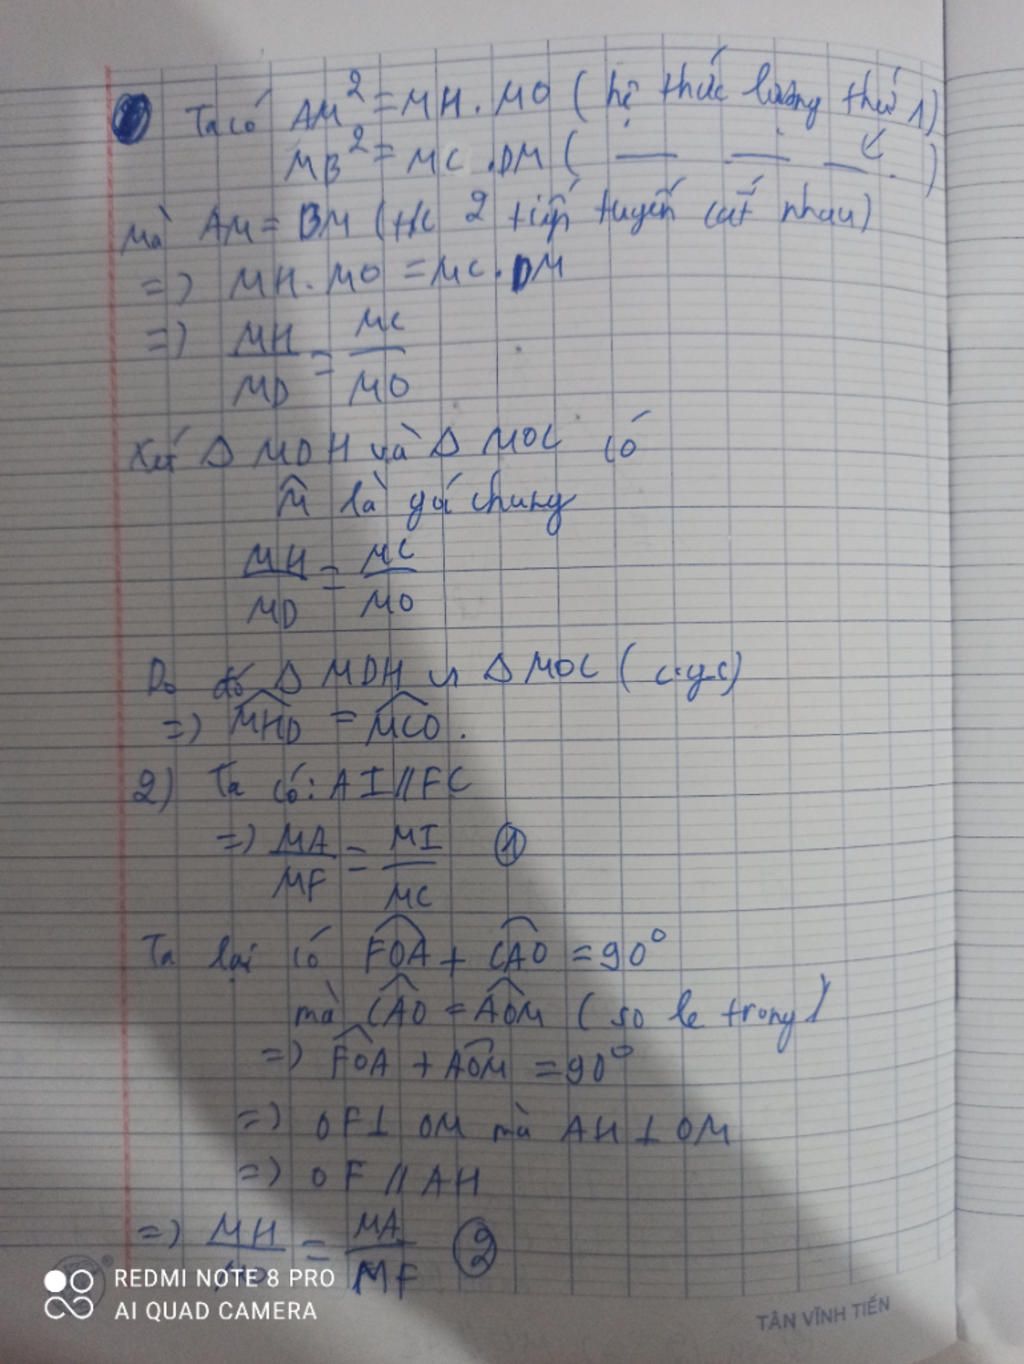 Ta có AM² = MH. MO ( hệ thức lượng thứ 1)
MB² = MC .DM ( — — — )
Mà AM = BM (t/c 2 tiếp tuyến cắt nhau)
=> MH. MO = MC. DM
=> MH/MD = MC/MO
Xét Δ MDH và Δ MOC có
M̂ là góc chung
MH/MD = MC/MO
Do đó Δ MDH ∽ Δ MOC ( c.g.c)
=> MHD = MCO.
2) Ta có: AI // FC
=> MA/MF = MI/MC ①
Ta lại có FOA + CAO = 90°
mà CAO = AOM ( so le trong)
=> FOA + AOM = 90°
=> OF ⊥ OM mà AH ⊥ OM
=> OF // AH
=> MH/MO = MA/MF ②
REDMI NOTE 8 PRO
AI QUAD CAMERA
TÂN VĨNH TIẾN